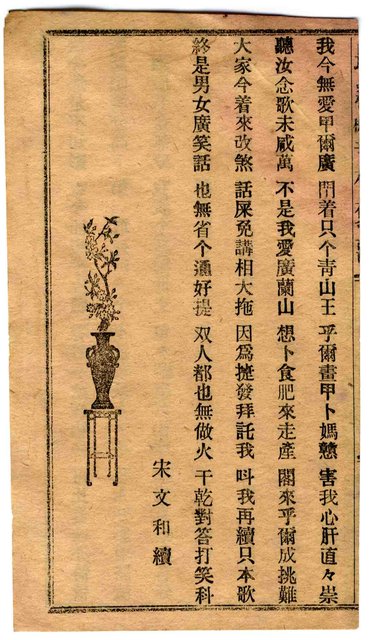 我今無愛甲爾廣 閗着只个青山王 乎爾畫甲卜媽戆 害我心肝直々祟
聽汝念歌未咸萬 不是我愛廣蘭山 想卜食肥來走產 閣來乎爾成挑難
大家今着來改煞 話屎免講相大拖 因為搋發拜託我 叫我再續只本歌
終是男女廣笑話 也無省个通好提 双人都也無做火 干乾對答打笑科
宋文和續